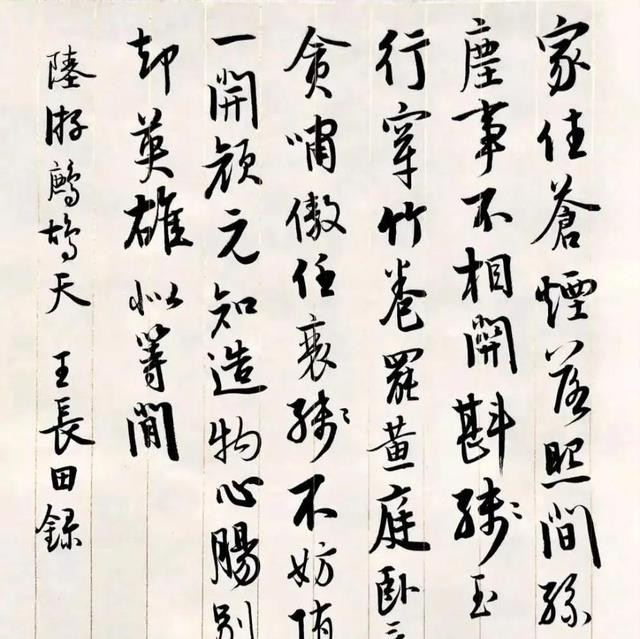 家住蒼煙落照間絲
塵事不相關斟殘玉
行穿竹卷罷黃庭臥
貪嘯傲任衰殘不妨隨
一開顏元知造物心腸別
却英雄似等閒
陸游鷓鴣天 王長田錄